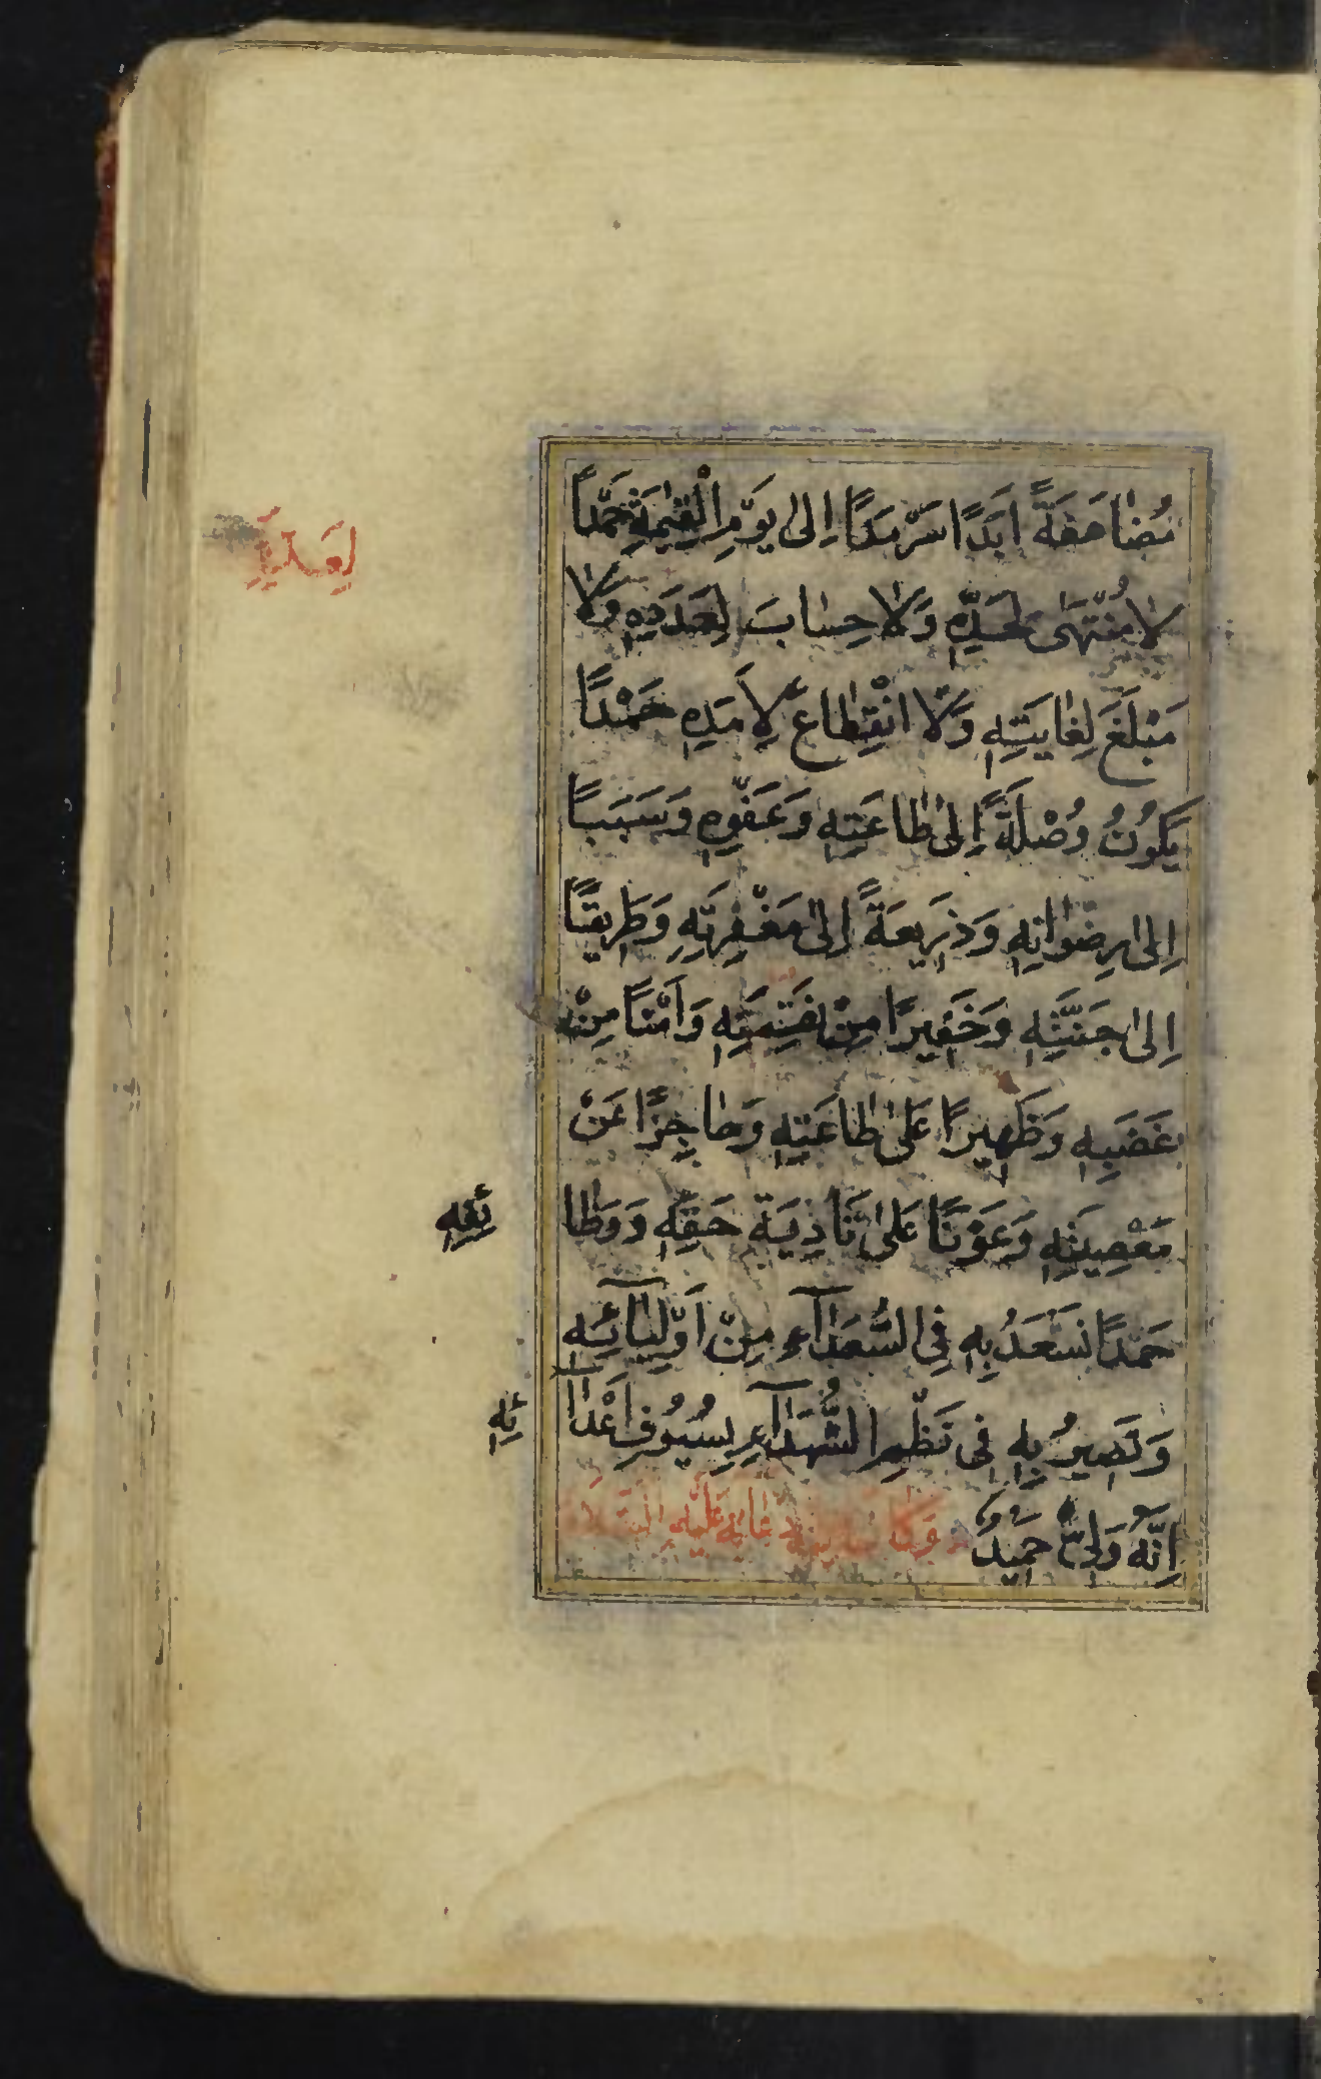 مُضٰاعَفَةً اَبَدًا سَرْمَدًا اِلىٰ يَوْمِ الْقِيٰمَةِ حَمْدًا
لٰا مُنْتَهىٰ لِحَدِّهِ وَلٰا حِسٰابَ لِعَدَدِهِ وَلٰا
مَبْلَغَ لِغٰايَتِهِ وَلَا انْقِطٰاعَ لِاَمَدِهِ حَمْدًا
يَكُونُ وُصْلَةً اِلىٰ طٰاعَتِهِ وَعَفْوِهِ وَسَبَبًا
اِلىٰ رِضْوٰانِهِ وَذَرِيعَةً اِلىٰ مَغْفِرَتِهِ وَطَرِيقًا
اِلىٰ جَنَّتِهِ وَخَفِيرًا مِنْ نَقِمَتِهِ وَاَمْنًا مِنْ
غَضَبِهِ وَظَهِيرًا عَلىٰ طٰاعَتِهِ وَحٰاجِزًا عَنْ
مَعْصِيَتِهِ وَعَوْنًا عَلىٰ تَأْدِيَةِ حَقِّهِ وَوَظٰا
ئِفِهِ
حَمْدًا نَسْعَدُ بِهِ فِى السُّعَدٰآءِ مِنْ اَوْلِيٰآئِهِ
وَنَصِيرُ بِهِ فِى نَظْمِ الشُّهَدٰآءِ بِسُيُوفِ اَعْدٰآ
ئِهِ
اِنَّهُ وَلِىٌّ حَمِيدٌ وَكٰانَ مِنْ دُعٰائِهِ عَلَيْهِ السَّلَامُ